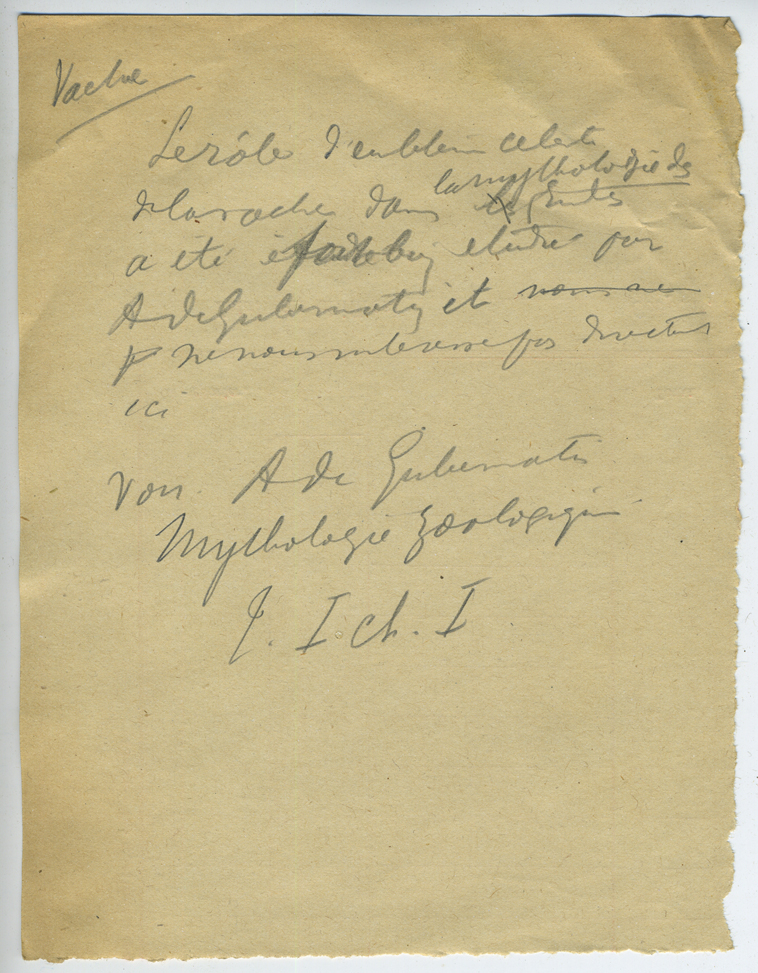 Vache
Le rôle d'emblem celeste
de la vache dans la mythologie des Indes
a été étudié par
A de Gubernatis et nous ne
ne nous interesse pas directem
ici
Voir A de Gubernatis
Mythologie zoologique
T. I ch. I